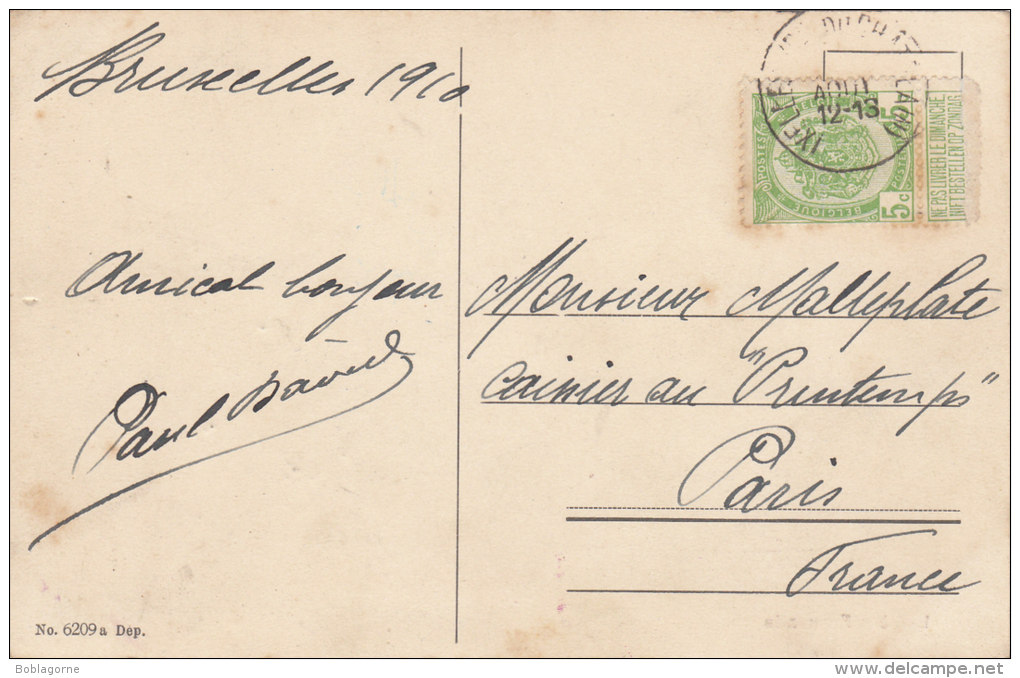 Bruxelles 1910
Amical bonjour
Paul
Monsieur Malleplate
caissier au "Printemps"
Paris
France
AOUT
12-13
POSTES
BELGIQUE
5c
5
NE PAS LIVRER LE DIMANCHE
NIET BESTELLEN OP ZONDAG
No. 6209 a Dep.
Boblagorne
delcampe.net